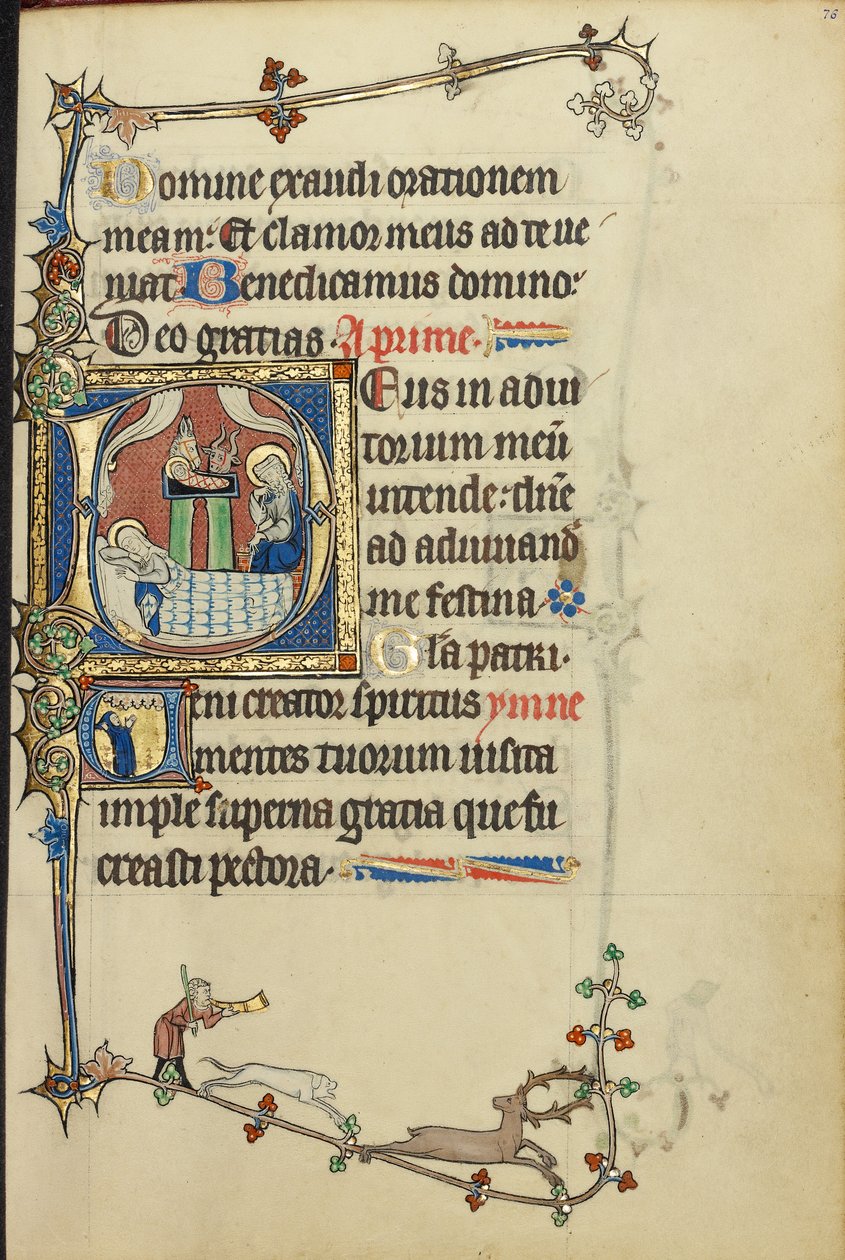 76
Domine exaudi orationem
meam: Et clamor meus ad te ue
niat Benedicamus domino:
Deo gratias. A prime.
Deus in adiu
torium meū
intende: dn̄e
ad adiuuand̄
me festina
Gl̄a patri.
Veni creator spiritus ymne
mentes tuorum uisita
imple superna gratia que tu
creasti pectora.